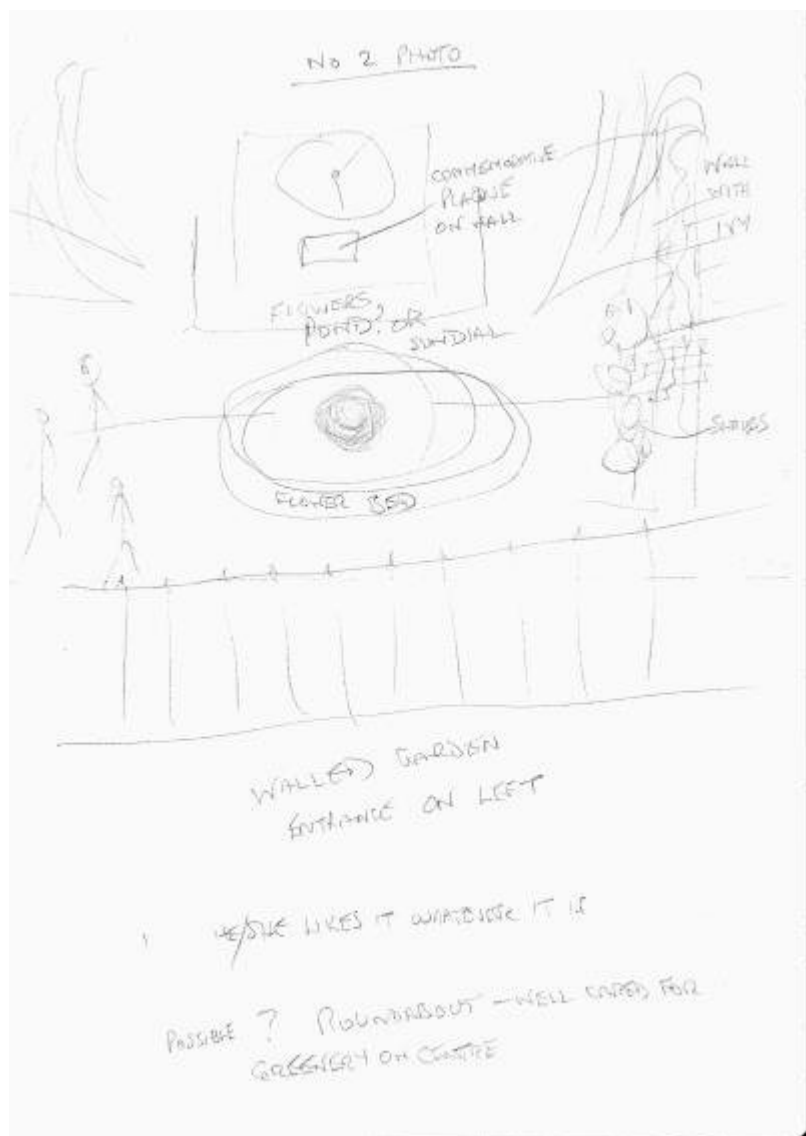 No 2 PHOTO
COMMEMORATIVE
PLAQUE
ON WALL
WALL
WITH
IVY
FLOWERS,
POND? OR
SUNDIAL
SHRUBS
FLOWER BED
WALLED GARDEN
ENTRANCE ON LEFT
HE/SHE LIKES IT WHATEVER IT IS
POSSIBLE ? ROUNDABOUT – WELL CARED FOR
GREENERY ON CENTRE